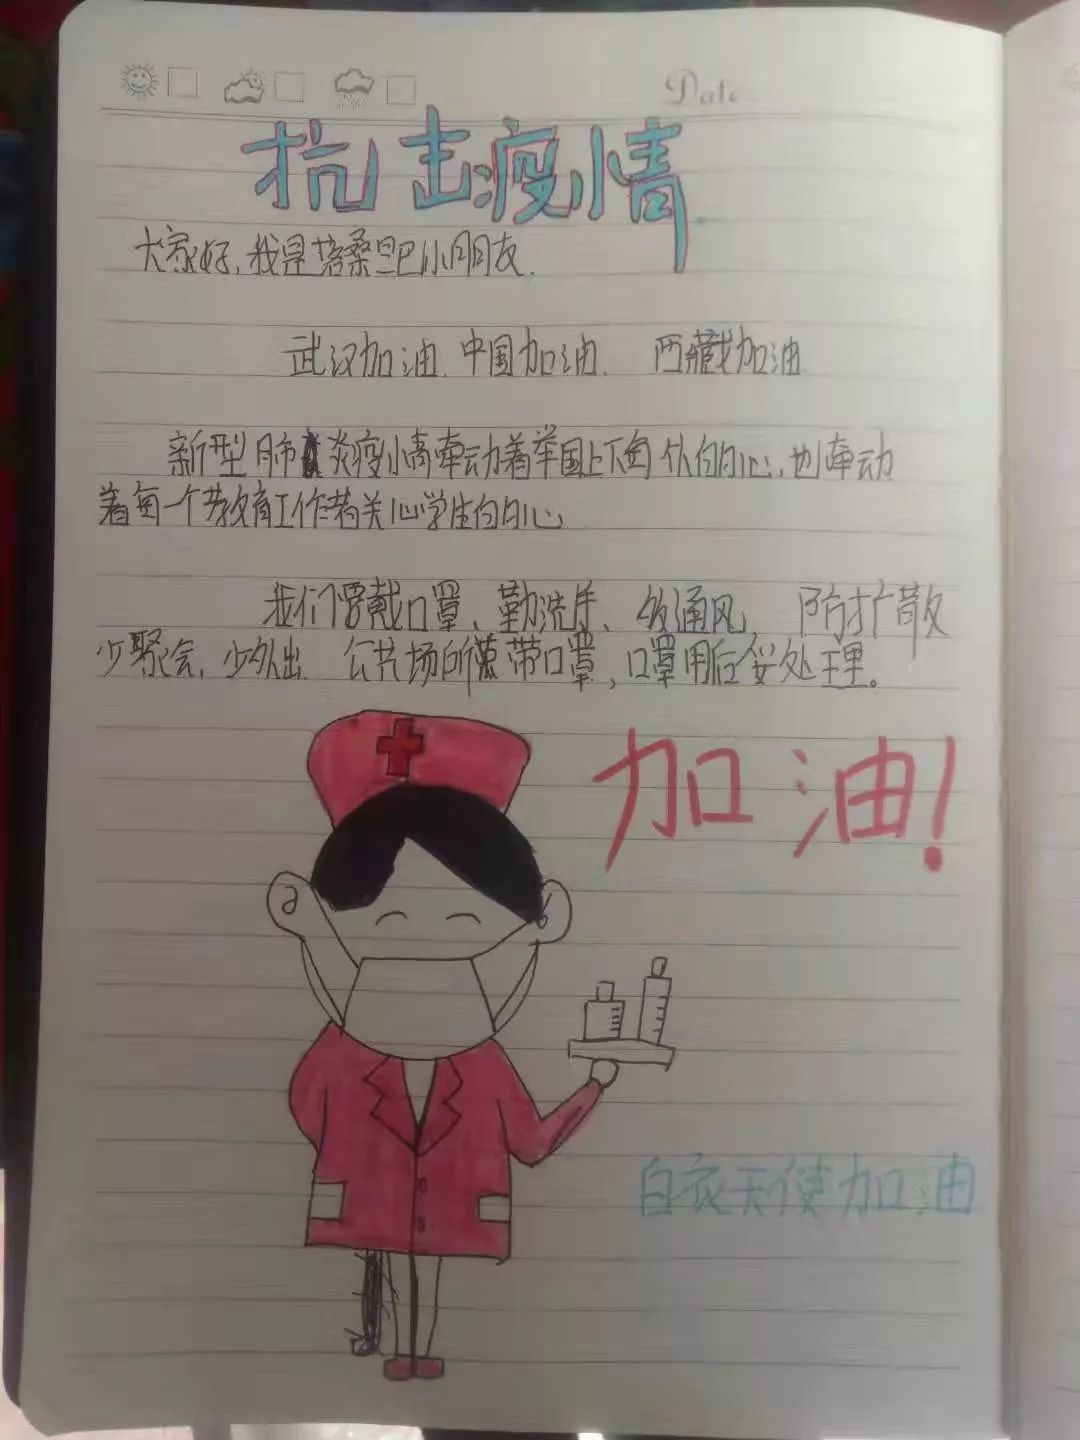 Date
抗击疫情
大家好,我是洛桑旦巴小朋友.
武汉加油.中国加油. 西藏加油
新型肺炎疫情牵动着举国上下每个人的心,也牵动
着每一个教育工作者关心学生的心
我们要戴口罩、勤洗手、 通风, 防扩散
少聚会,少外出. 公共场所 带口罩,口罩用后妥处理。
加油!
白衣天使加油